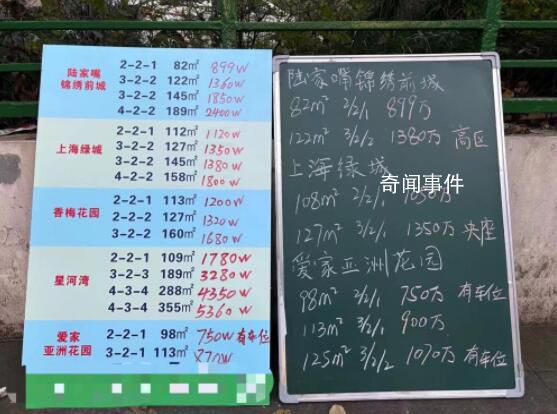 陆家嘴
锦绣前城
2-2-1 82m² 899W
3-2-2 122m² 1360W
3-2-2 145m² 1850W
4-2-2 189m² 2400W
上海绿城
2-2-1 112m² 1120W
3-2-2 127m² 1350W
3-2-2 145m² 1380W
4-2-2 158m² 1800W
香梅花园
2-2-1 113m² 1200W
2-2-2 127m² 1320W
3-2-2 160m² 1680W
星河湾
2-2-1 109m² 1780W
3-2-3 189m² 3280W
4-3-4 288m² 4350W
4-3-4 355m² 5360W
爱家
亚洲花园
2-2-1 98m² 750W 有车位
3-2-1 113m² 870W
陆家嘴锦绣前城
82m² 2/2/1 899万
122m² 3/2/2 1380万 高区
上海绿城
108m² 2/2/1 1050万
127m² 3/2/1 1350万 央座
爱家亚洲花园
98m² 2/2/1 750万 有车位
113m² 3/2/1 900万
125m² 3/2/2 1070万 有车位
奇闻事件